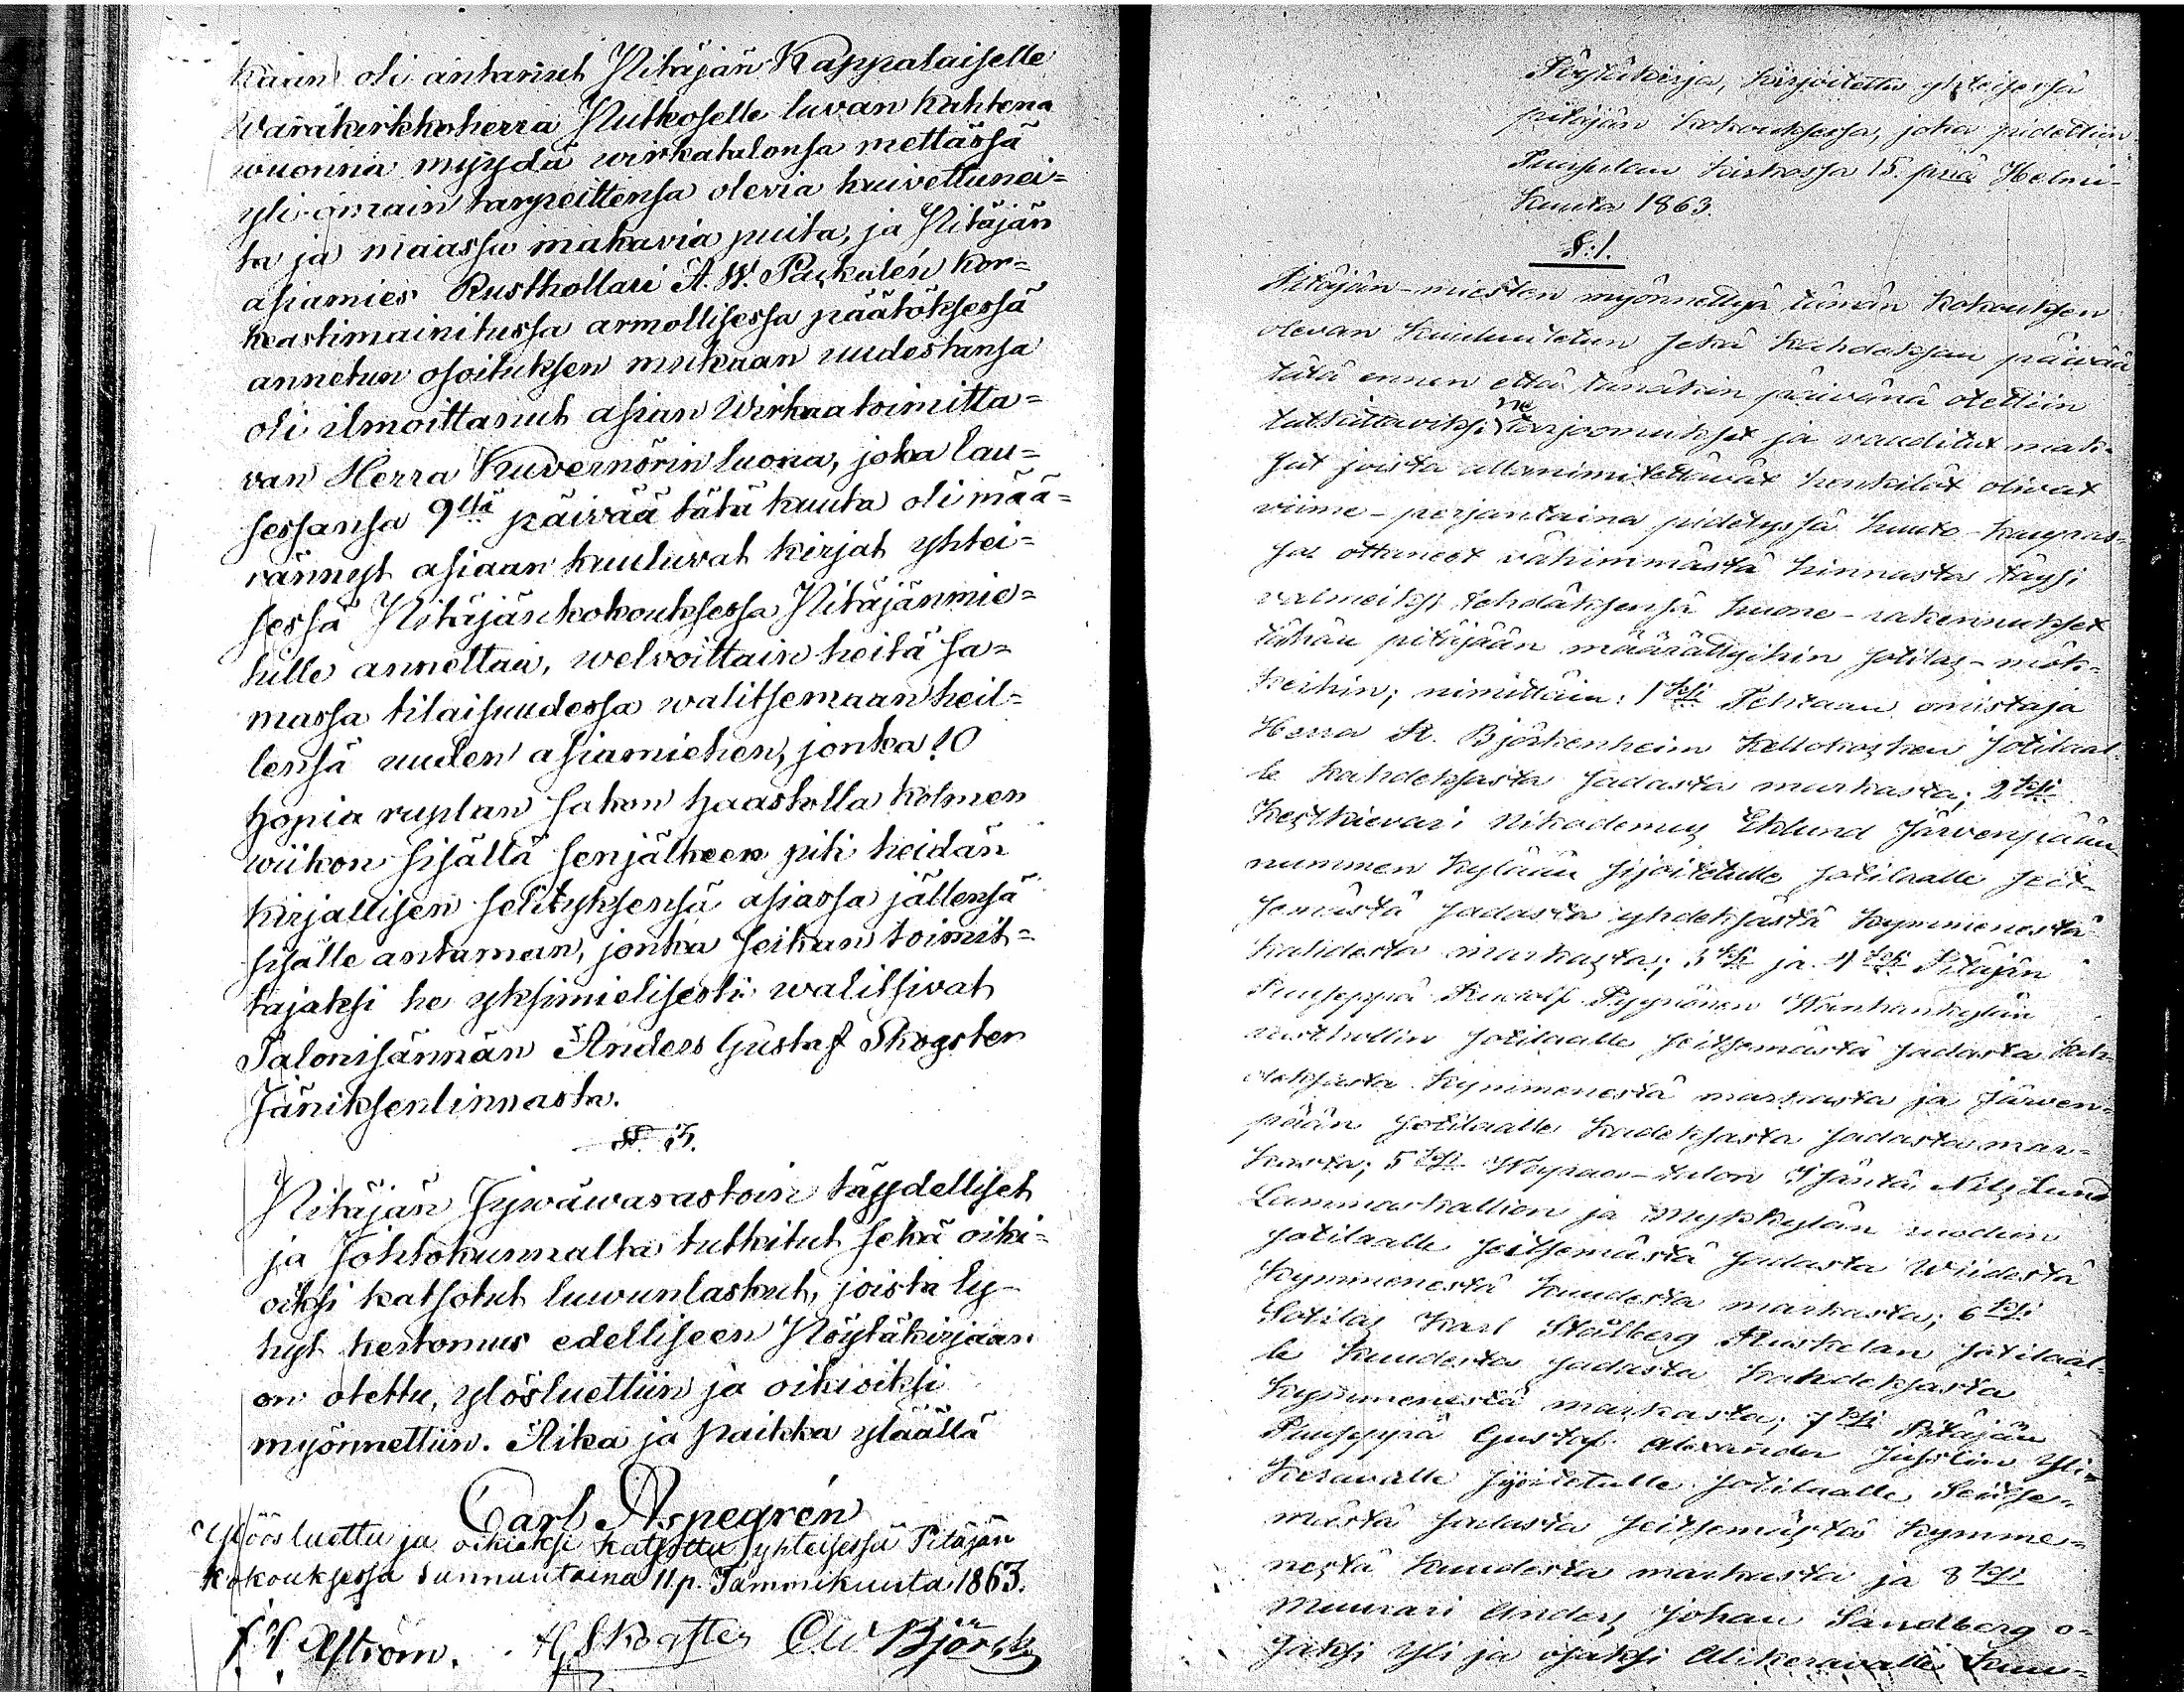 kain oli antanut Pitäjän Kappalaiselle
Warakirkkoherra Putkoselle luvan kahtena
wuonna myydä wirkatalonsa mettässä
yli omain tarpeittensa olevia kuivettunei=
ta ja maassa makavia puita, ja Pitäjän
asiamies Rusthollari A. W. Paskalén kor=
keastimainitussa armollisessa päätöksessä
annetun osoituksen mukaan uudestansa
oli ilmoittanut asian Wirkaatoimitta=
van Herra Kuvernörin luona, joka lau=
sessansa 9ltä päivää tätä kuuta oli mää=
rännyt asiaan kuuluvat kirjat yhtei=
sessä Pitäjänkokouksessa Pitäjänmie=
hille annettaa, welvoittain heitä sa=
massa tilaisuudessa walitsemaan heil=
lensä uuden asiamiehen, jonka 10
hopia ruplan sakon haastolla kolmen
wiikon sisällä senjälkeen piti heidän
kirjallisen selityksensä asiassa jällensä
sisälle antaman, jonka seikan toimit=
tajaksi he yksimielisesti walitsivat
Talonisännän Anders Gustaf Skogster
Jäniksenlinnasta.
§. 3.
Pitäjän Jywäwarastoin täydelliset
ja Johtokunnalta tutkitut sekä oiki=
oiksi katsotut luwunlaskut, joista ly=
hyt kertomus edelliseen Pöytäkirjaan
on otettu, ylösluettiin ja oikioiksi
myönnettiin. Aika ja paikka yläällä
Carl Aspegrén
Ylösluettu ja oikiaksi katsottu yhteisessä Pitäjän
kokouksessa sunnuntaina 11 p. Tammikuuta 1863.
Åström. A G Skogster C W Björk
Pöytäkirja, kirjoitettu yhteisessä
pitäjän kokouksessa, joka pidettiin
Tuusulan kirkossa 15. pnä Helmi-
kuuta 1863.
§:1.
Pitäjän-miesten myönnettyä tämän kokouksen
olevan kuulutetun sekä kahdeksan päivää
tätä ennen että tänäkin päivänä otettiin
tutkittaviksi ne tarjoomukset ja vauditut mak=
sut joista allanimitettävät henkilöt olivat
viime-perjantaina pidetyssä huuto-kaupas=
sa ottaneet vähimmästä hinnasta täysi
valmeiksi tehdäksensä huone-rakennukset
tähän pitäjään määrättyihin sotilas-mök=
keihin; nimittäin: 1ksi Tehtaan omistaja
Herra A. Björkenheim Kellokosken sotilaal=
le kahdeksasta sadasta markasta; 2ksi
Kestkievari Nikodemus Eklund Järvenpään
nummen kylään sijoitetulle sotilaalle seit=
semästä sadasta yhdeksästä kymmenestä
kahdesta markasta; 3ksi ja 4ksi Pitäjän
Puuseppä Rudolf Pyynönen Wanhankylän
rusthollin sotilaalle seitsemästä sadasta kah=
deksasta kymmenestä markasta ja Järven=
pään sotilaalle kadeksasta sadasta mar=
kasta; 5ksi talon Isäntä Nils Lund
Lammaskallion ja Mykkylän
sotilaalle seitsemästä sadasta wiidestä
kymmenestä kuudesta markasta; 6ksi
Sotilas Karl Stålberg Ruskelan sotilaal=
le kuudesta sadasta kahdeksasta
kymmenestä markasta; 7ksi Pitäjän
Puuseppä Gustaf Alexander Juslin Yli=
Keravalle sijoitetulle sotilaalle seitse=
mästä sadasta seitsemästä kymme=
nestä kuudesta markasta ja 8ksi
Muurari Anders Johan Sandberg o=
saksi Yli ja osaksi Alikeravalle kuu=